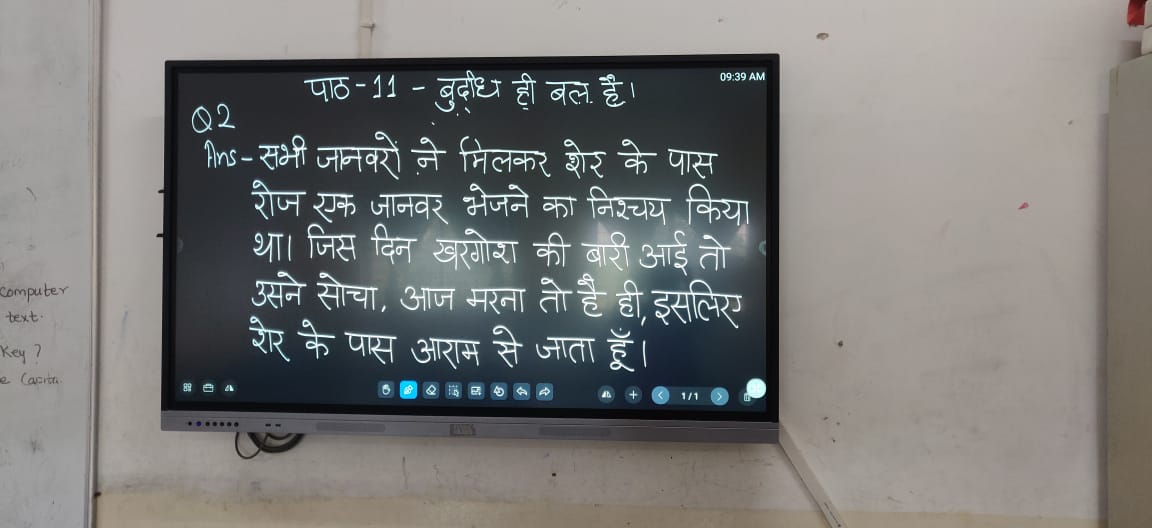 पाठ-11 - बुद्धि ही बल है।
09:39 AM
Q2
Ans- सभी जानवरों ने मिलकर शेर के पास
रोज एक जानवर भेजने का निश्चय किया
था। जिस दिन खरगोश की बारी आई तो
उसने सोचा, आज मरना तो है ही, इसलिए
शेर के पास आराम से जाता हूँ।
1/1
computer
text.
Key ?